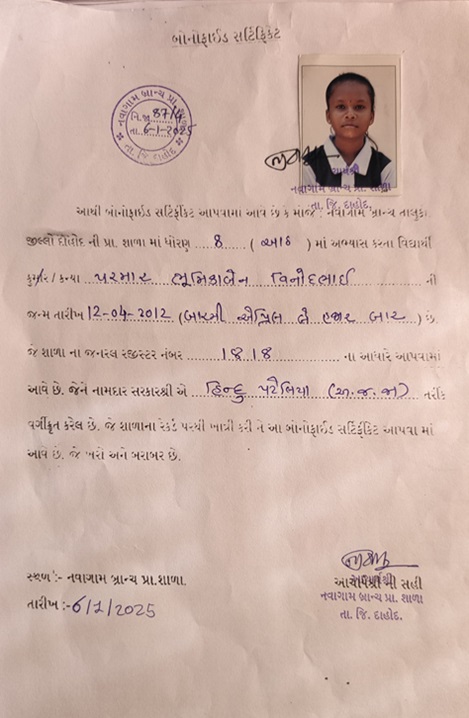 બોનોફાઈડ સર્ટિફિકેટ
નવાગામ બ્રાન્ચ પ્રા. શાળા
નિ.જા. 87/4
તા. 6-1-2025
તા. જિ. દાહોદ
આચાર્યશ્રી
નવાગામ બ્રાન્ચ પ્રા. શાળા
તા. જિ. દાહોદ.
આથી બોનોફાઈડ સર્ટિફીકેટ આપવામાં આવે છે કે મોજે : નવાગામ બ્રાન્ચ તાલુકા
જીલ્લો દાહોદ ની પ્રા. શાળા માં ધોરણ 8 ( આઠ ) માં અભ્યાસ કરતા વિદ્યાર્થી
કુમાર / કન્યા પરમાર ભૂમિકાબેન વિનોદભાઈ ની
જન્મ તારીખ 12-04-2012 (બારમી એપ્રિલ બે હજાર બાર ) છે.
જે શાળા ના જનરલ રજીસ્ટર નંબર 1818 ના આધારે આપવામાં
આવે છે. જેને નામદાર સરકારશ્રી એ હિન્દુ પટેલિયા (અ.જ.જા) તરીકે
વર્ગીકૃત કરેલ છે. જે શાળાના રેકર્ડ પરથી ખાત્રી કરી ને આ બોનોફાઈડ સર્ટિફીકેટ આપવા માં
આવે છે. જે ખરો અને બરાબર છે.
સ્થળ :- નવાગામ બ્રાન્ચ પ્રા.શાળા.
તારીખ :- 6/1/2025
આચાર્યશ્રી ની સહી
નવાગામ બ્રાન્ચ પ્રા. શાળા
તા. જિ. દાહોદ.